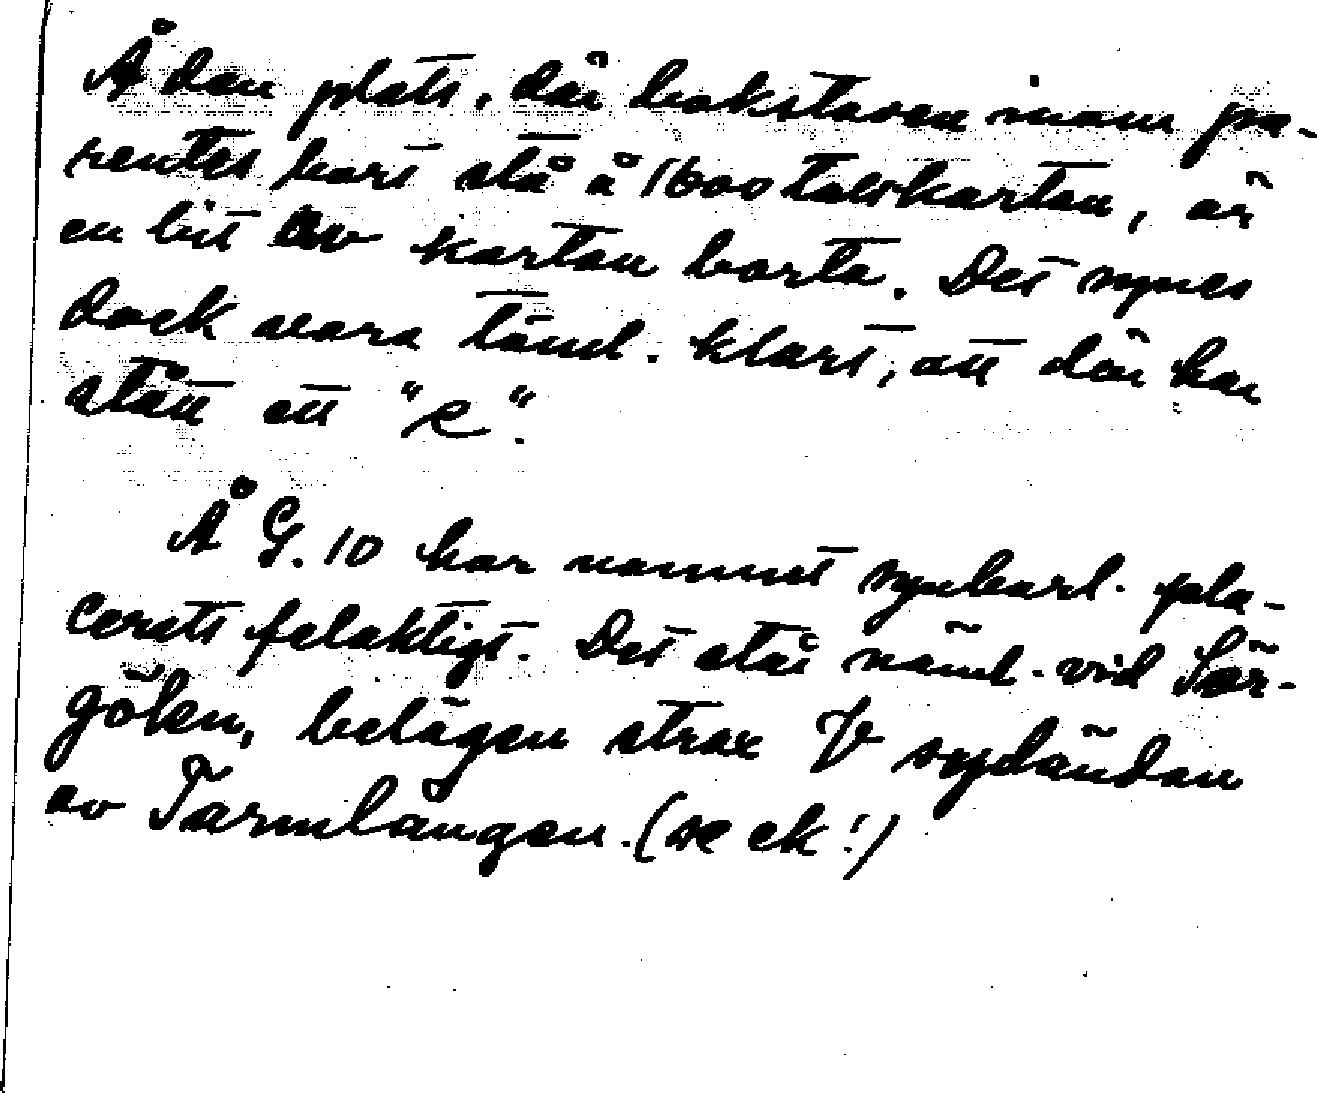 Å den plats, där bokstaven inom pa-
rentes bort stå å 1600 talskartan, är
en bit av kartan borta. Det synes
dock vara täml. klart, att där har
stått ett "e".
Å G. 10 har namnet synbarl. pla-
cerats felaktigt. Det står näml. vid Sör-
gölen, belägen strax V sydändan
av Tarmlången. (se ek!)